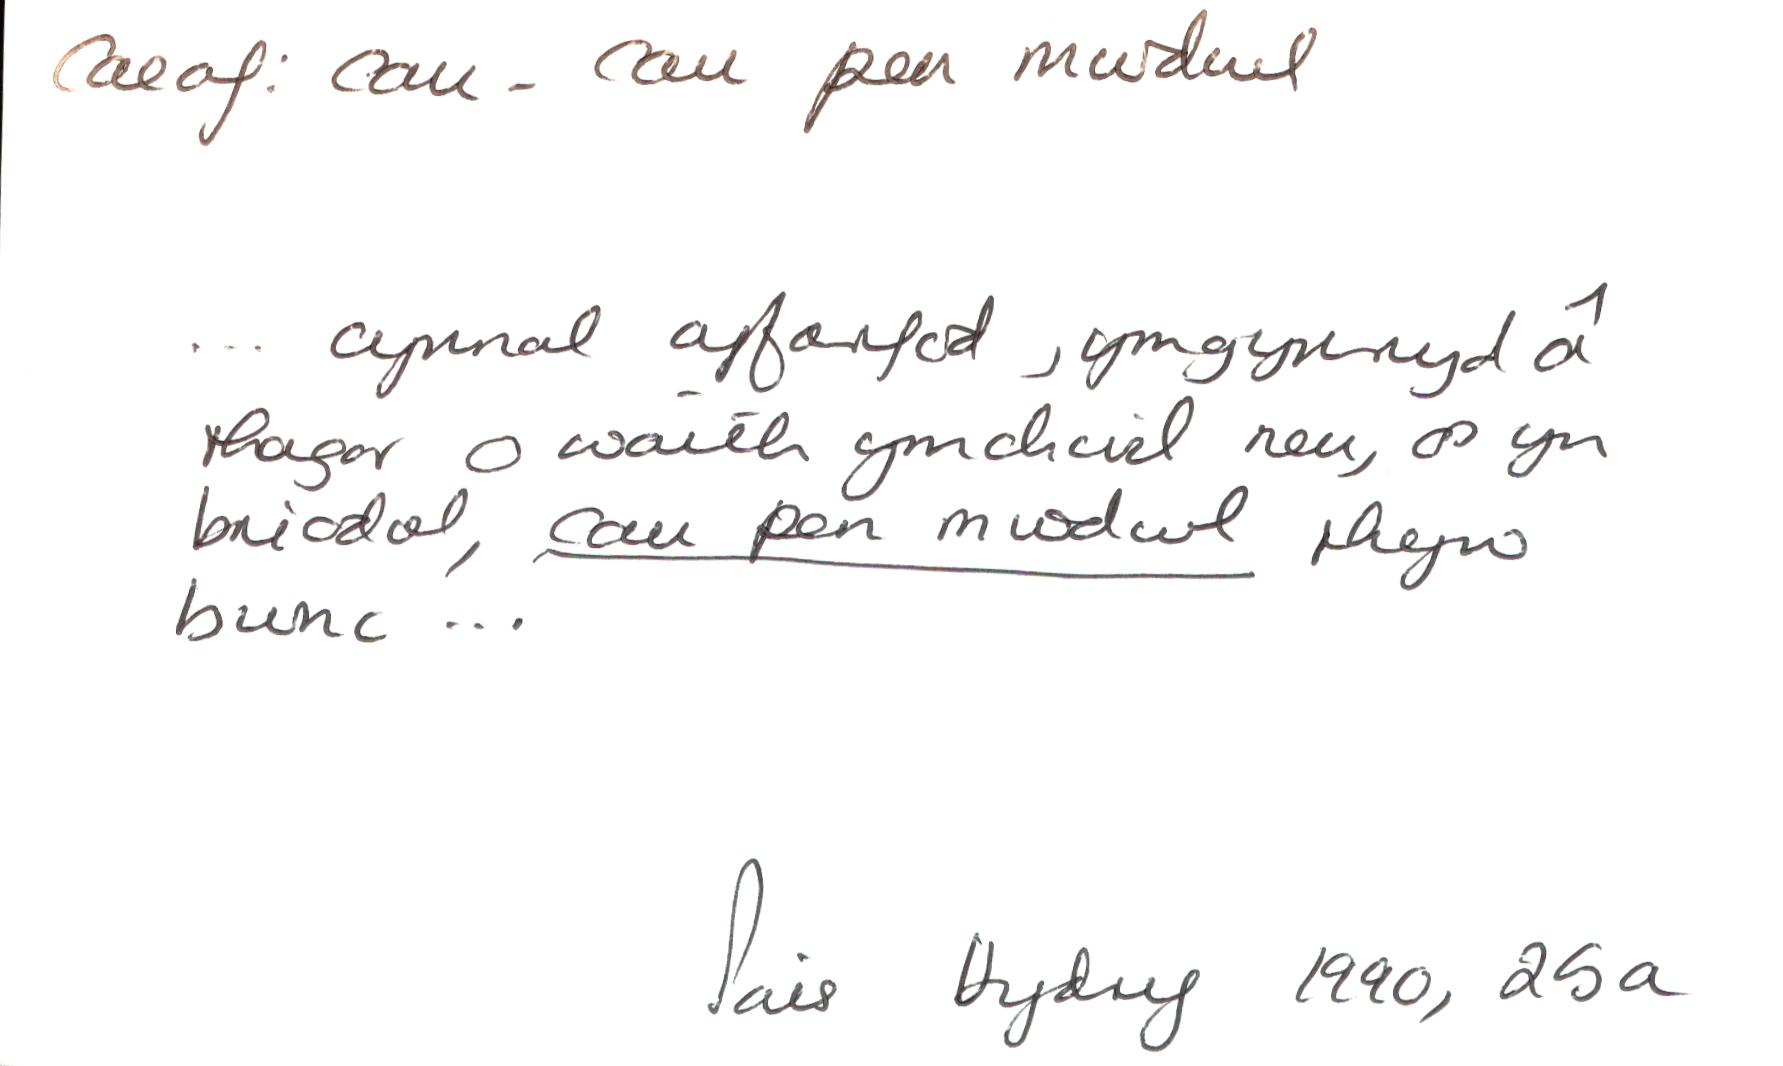 Caeaf: cau - cau pen mwdwl
... cynnal cyfarfod, ymgymryd â
rhagor o waith ymchwil neu, os yn
briodol, cau pen mwdwl rhyw
bwnc ...
Pais Hydref 1990, 25a